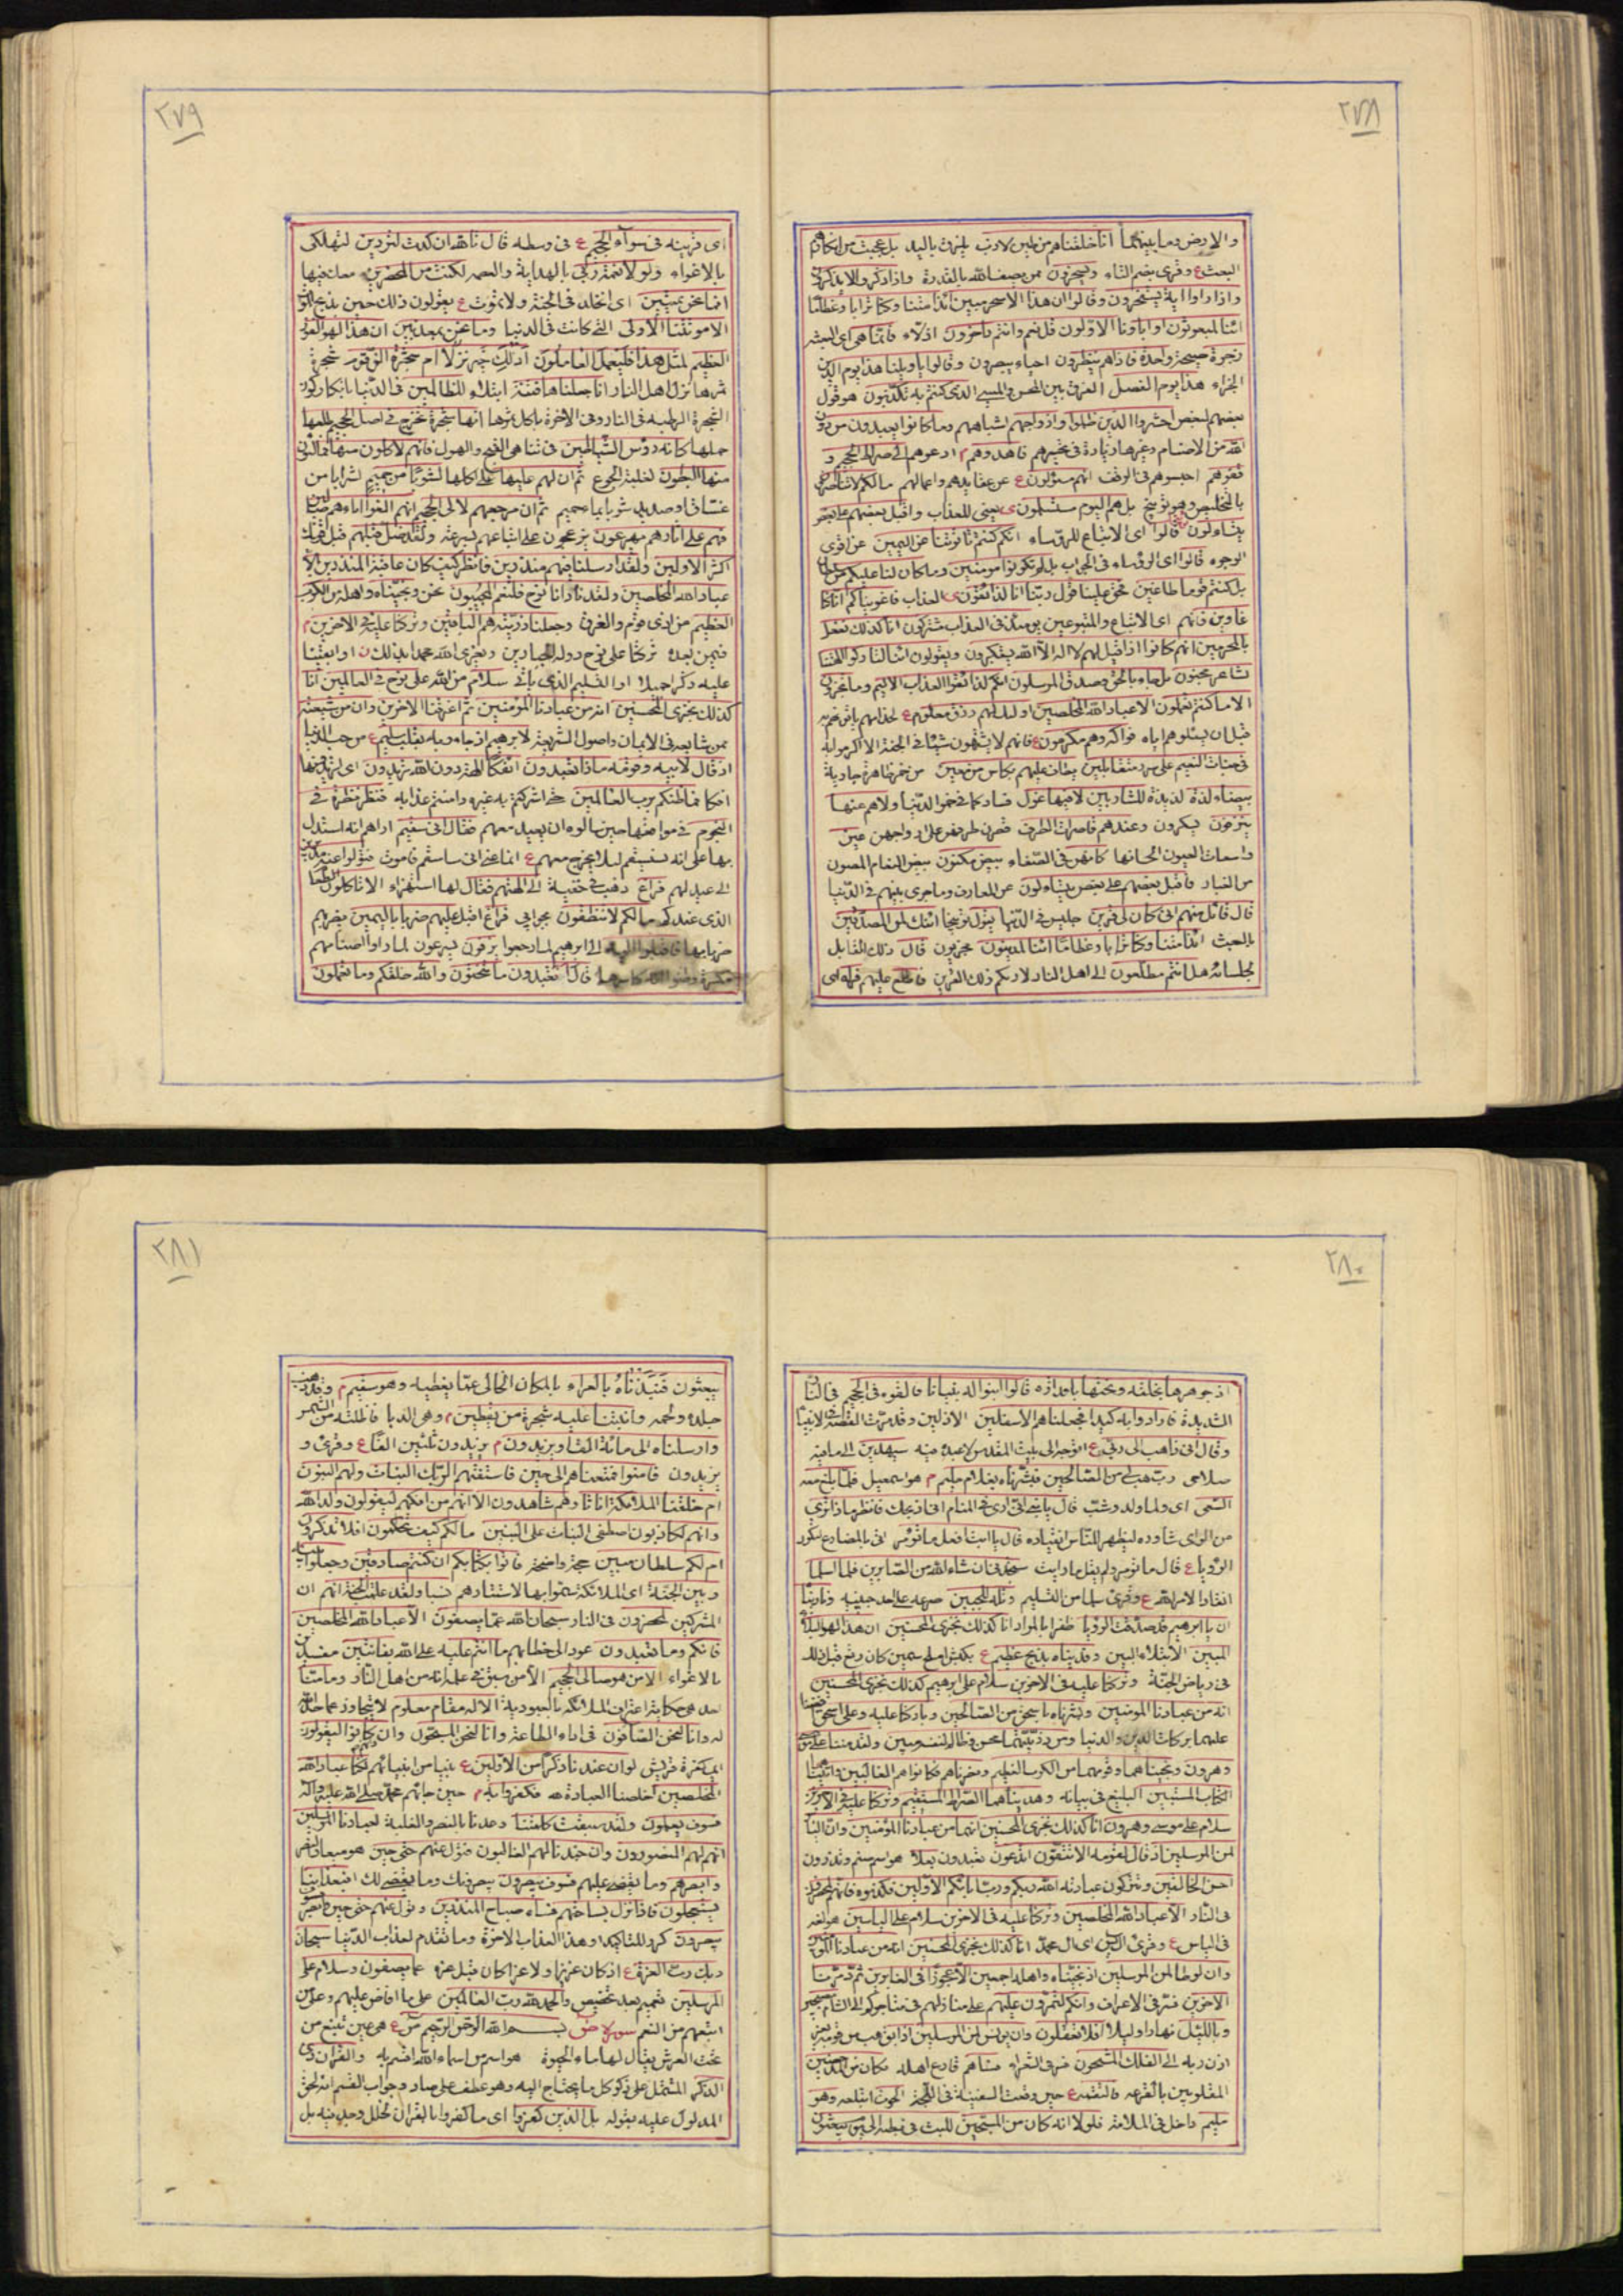 ٢٧٨
والارض وما بينهما انا خلقناهم من طين لازب يلزق باليد بل عجبت من انكارهم
البعث ع وقرئ بضم التاء ويسخرون ممن يصف الله بالقدرة واذا ذكروا لا يذكرون
واذا راوا اية يستسخرون وقالوا ان هذا الا سحر مبين ائذا متنا وكنا ترابا وعظاما
ائنا لمبعوثون او اباؤنا الاولون قل نعم وانتم داخرون اذلاء فانما هي اي البعثة
زجرة صيحة واحدة فاذا هم ينظرون احياء يبصرون وقالوا يا ويلنا هذا يوم الدين
الجزاء هذا يوم الفصل الفرق بين المحسن والمسيء الذي كنتم به تكذبون هو قول
بعضهم لبعض احشروا الذين ظلموا وازواجهم اشباههم وما كانوا يعبدون من دون
الله من الاصنام وغيرها زيادة في تحسيرهم فاهدوهم م ادعوهم الى صراط الجحيم و
قفوهم احبسوهم في الموقف انهم مسئولون ع عن عقايدهم واعمالهم ما لكم لا تناصرون
بالتخليص وهو توبيخ بل هم اليوم مستسلمون ى يعني للعذاب واقبل بعضهم على بعض
يتساءلون قالوا اي الاتباع للرؤساء انكم كنتم تاتوننا عن اليمين عن اقوى
الوجوه قالوا اي الرؤساء في الجواب بل لم تكونوا مومنين وما كان لنا عليكم من سلطان
بل كنتم قوما طاغين فحق علينا قول ربنا انا لذائقون ى العذاب فاغويناكم انا كنا
غاوين فانهم اي الاتباع والمتبوعين يومئذ في العذاب مشتركون انا كذلك نفعل
بالمجرمين انهم كانوا اذا قيل لهم لا اله الا الله يستكبرون ويقولون ائنا لتاركوا الهتنا
لشاعر مجنون بل جاء بالحق وصدق المرسلون انكم لذائقوا العذاب الاليم وما تجزون
الا ما كنتم تعملون الا عباد الله المخلصين اولئك لهم رزق معلوم ع
قبل ان يسئلوهم اياه فواكه وهم مكرمون ع فانهم لا يشتهون شيئا في الجنة الا اكرموا به
في جنات النعيم على سرر متقابلين يطاف عليهم بكاس من معين من خمر ظاهرة جارية
بيضاء لذة لذيذة للشاربين لا فيها غول فساد كما في خمر الدنيا ولا هم عنها
ينزفون يسكرون وعندهم قاصرات الطرف قصرن طرفهن على ازواجهن عين
واسعات العيون لحسانها كانهن في الصفاء بيض مكنون بيض النعام المصون
من الغبار فاقبل بعضهم على بعض يتساءلون عن المعارف وما جرى بينهم في الدنيا
قال قائل منهم اني كان لي قرين جليس في الدنيا يقول توبيخا ائنك لمن المصدقين
بالبعث ائذا متنا وكنا ترابا وعظاما ائنا لمدينون مجزيون قال ذلك القائل
لجلسائه هل انتم مطلعون الى اهل النار لاريكم ذلك القرين فاطلع عليهم فرآه اي
٢٧٩
اي قرينه في سواء الجحيم ع في وسطه قال تالله ان كدت لتردين لتهلكني
بالاغواء ولولا نعمة ربي بالهداية والعصمة لكنت من المحضرين معك فيها
افما نحن بميتين اي نخلد في الجنة ولا نموت ع يقولون ذلك حين يذبح الموت
الا موتتنا الاولى التي كانت في الدنيا وما نحن بمعذبين ان هذا لهو الفوز
العظيم لمثل هذا فليعمل العاملون اذلك خير نزلا ام شجرة الزقوم شجرة
ثمرها نزل اهل النار انا جعلناها فتنة ابتلاء للظالمين في الدنيا بانكار كون
الشجرة الرطبة في النار وفي الاخرة باكل ثمرها انها شجرة تخرج في اصل الجحيم طلعها
حملها كانه رؤس الشياطين في تناهي القبح والهول فانهم لاكلون منها فمالئون
منها البطون لغلبة الجوع ثم ان لهم عليها على اكلها لشوبا من حميم لشرابا من
غساق او صديد مشوبا بماء حميم ثم ان مرجعهم لالى الجحيم انهم الفوا اباءهم ضالين
فهم على اثارهم يهرعون يزعجون على اتباعهم بسرعة ولقد ضل قبلهم قبل قومك
اكثر الاولين ولقد ارسلنا فيهم منذرين فانظر كيف كان عاقبة المنذرين الا
عباد الله المخلصين ولقد نادانا نوح فلنعم المجيبون نحن ونجيناه واهله من الكرب
العظيم من اذى قومه والغرق وجعلنا ذريته هم الباقين وتركنا عليه في الاخرين م
فيمن بعده تركنا على نوح دولة الجبارين ويعزى الله محمدا بذلك ن او ابقينا
عليه ذكرا جميلا او التسليم الذي ياتي سلام من الله على نوح في العالمين انا
كذلك نجزي المحسنين انه من عبادنا المؤمنين ثم اغرقنا الاخرين وان من شيعته
ممن شايعه في الايمان واصول الشريعة لابرهيم اذ جاء ربه بقلب سليم ع من حب الدنيا
اذ قال لابيه وقومه ماذا تعبدون ائفكا الهة دون الله تريدون اي تريدونها
افكا فما ظنكم برب العالمين حتى اشركتم به غيره وامنتم عذابه فنظر نظرة في
النجوم في مواضعها حين سالوه ان يعيد معهم فقال اني سقيم اراهم انه استدل
بها على انه سقيم لئلا يخرج معهم ع انما عنى اني ساسقم فاموت فتولوا عنه مدبرين
الى عيد لهم فراغ ذهب في خفية الى الهتهم فقال لها استهزاء الا تاكلون الطعام
الذي عندكم ما لكم لا تنطقون بجوابي فراغ اقبل عليهم ضربا باليمين يضربهم
ضربا بها فاقبلوا اليه الى ابرهيم لما رجعوا يزفون يسرعون لما راوا اصنامهم
قال اتعبدون ما تنحتون والله خلقكم وما تعملون
٢٨٠
اذ جوهرها بخلقه ونحتها باقداره قالوا ابنوا له بنيانا فالقوه في الجحيم في النار
الشديدة فارادوا به كيدا فجعلناهم الاسفلين الاذلين وقد مرت القصة في الانبياء
وقال اني ذاهب الى ربي ع اتوجه الى بيت المقدس لاعبده فيه سيهدين الى ما فيه
صلاحي رب هب لي من الصالحين فبشرناه بغلام حليم م هو اسمعيل فلما بلغ معه
السعي اي ولما ولد وشب قال يا بني اني ارى في المنام اني اذبحك فانظر ماذا ترى
من الراي شاوره ليظهر للناس انقياده قال يا ابت افعل ما تؤمر اتى بالمضارع لتكرر
الرؤيا ع قال ما تومر ولم يقل ما رايت ستجدني ان شاء الله من الصابرين فلما اسلما
انقادا لامر الله ع وقرئ سلما من التسليم وتله للجبين صرعه على احد جبينيه وناديناه
ان يا ابرهيم قد صدقت الرؤيا ظفرا بالمراد انا كذلك نجزي المحسنين ان هذا لهو البلاء
المبين الابتلاء البين وفديناه بذبح عظيم ع بكبش املح سمين كان يرتع قبل ذلك
في رياض الجنة وتركنا عليه في الاخرين سلام على ابرهيم كذلك نجزي المحسنين
انه من عبادنا المومنين وبشرناه باسحق من الصالحين وباركنا عليه وعلى اسحق افضنا
عليهما بركات الدين والدنيا ومن ذريتهما محسن وظالم لنفسه مبين ولقد مننا على موسى
وهرون ونجيناهما وقومهما من الكرب العظيم ونصرناهم فكانوا هم الغالبين واتيناهما
الكتاب المستبين البليغ في بيانه وهديناهما الصراط المستقيم وتركنا عليهما في الاخرين
سلام على موسى وهرون انا كذلك نجزي المحسنين انهما من عبادنا المؤمنين وان الياس
لمن المرسلين اذ قال لقومه الا تتقون اتدعون تعبدون بعلا هو اسم صنم وتذرون
احسن الخالقين وتتركون عبادته الله ربكم ورب ابائكم الاولين فكذبوه فانهم لمحضرون
في النار الا عباد الله المخلصين وتركنا عليه في الاخرين سلام على الياسين هو لغة
في الياس ع وقرئ ال يس اي ال محمد انا كذلك نجزي المحسنين انه من عبادنا المؤمنين
وان لوطا لمن المرسلين اذ نجيناه واهله اجمعين الا عجوزا في الغابرين ثم دمرنا
الاخرين فسر في الاعراف وانكم لتمرون عليهم على منازلهم في متاجركم الى الشام مصبحين
وبالليل نهارا وليلا افلا تعقلون وان يونس لمن المرسلين اذ ابق هرب من قومه بغير
اذن ربه الى الفلك المشحون فساهم قارع اهله فكان من المدحضين
المغلوبين بالقرعة فالتقمه ع حين وقعت السفينة في اللجة الحوت ابتلعه وهو
مليم داخل في الملامة فلولا انه كان من المسبحين للبث في بطنه الى يوم يبعثون
٢٨١
يبعثون فنبذناه بالعراء بالمكان الخالي عما يغطيه وهو سقيم م وقد ذهب
جلده ولحمه وانبتنا عليه شجرة من يقطين م وهي الدبا فاظلته من الشمس
وارسلناه الى مائة الف او يزيدون م يزيدون ثلثين الفا ع وقرئ و
يزيدون فامنوا فمتعناهم الى حين فاستفتهم الربك البنات ولهم البنون
ام خلقنا الملائكة اناثا وهم شاهدون الا انهم من افكهم ليقولون ولد الله
وانهم لكاذبون اصطفى البنات على البنين ما لكم كيف تحكمون افلا تذكرون
ام لكم سلطان مبين حجة واضحة فاتوا بكتابكم ان كنتم صادقين وجعلوا بينه
وبين الجنة اي الملائكة سموا بها لاستتارهم نسبا ولقد علمت الجنة انهم ان
المشركين لمحضرون في النار سبحان الله عما يصفون الا عباد الله المخلصين
فانكم وما تعبدون عود الى خطابهم ما انتم عليه على الله بفاتنين مفسدين
بالاغواء الا من هو صالي الجحيم الا من سبق في علمه انه من اهل النار وما منا
احد هي حكاية اعتراف الملائكة بالعبودية الا له مقام معلوم لا يتجاوز عما حد الله
له وانا لنحن الصافون في اداء الطاعة وانا لنحن المسبحون وان كانوا ليقولون
اي كفرة قريش لو ان عندنا ذكرا من الاولين ع نبيا من انبيائهم لكنا عباد الله
المخلصين اخلصنا العبادة له فكفروا به م حين جائهم محمد صلى الله عليه واله
فسوف يعلمون ولقد سبقت كلمتنا وعدنا بالنصر والغلبة لعبادنا المرسلين
انهم لهم المنصورون وان جندنا لهم الغالبون فتول عنهم حتى حين هو ميعاد النصر
وابصرهم وما يقضي عليهم فسوف يبصرون نصرتك وما يقضى لك افبعذابنا
يستعجلون فاذا نزل بساحتهم فساء صباح المنذرين وتول عنهم حتى حين وابصر
يبصرون كرر للتاكيد او هذا العذاب الاخرة وما تقدم لعذاب الدنيا سبحان
ربك رب العزة ع اذ كان عزيزا ولا عزا كان قبل عزه عما يصفون وسلام على
المرسلين تعميم بعد تخصيص والحمد لله رب العالمين على ما افاض عليهم وعلى من
اتبعهم من النعم سورة ص بسم الله الرحمن الرحيم ص ع هي عين تنبع من
تحت العرش يقال لها ماء الحيوة هو اسم من اسماء الله اقسم به والقران ذي
الذكر المشتمل على ذكر كل ما يحتاج اليه وهو عطف على صاد وجواب القسم انه لحق
المدلول عليه بقوله بل الذين كفروا اي ما كفروا بالقران لخلل وجد فيه بل